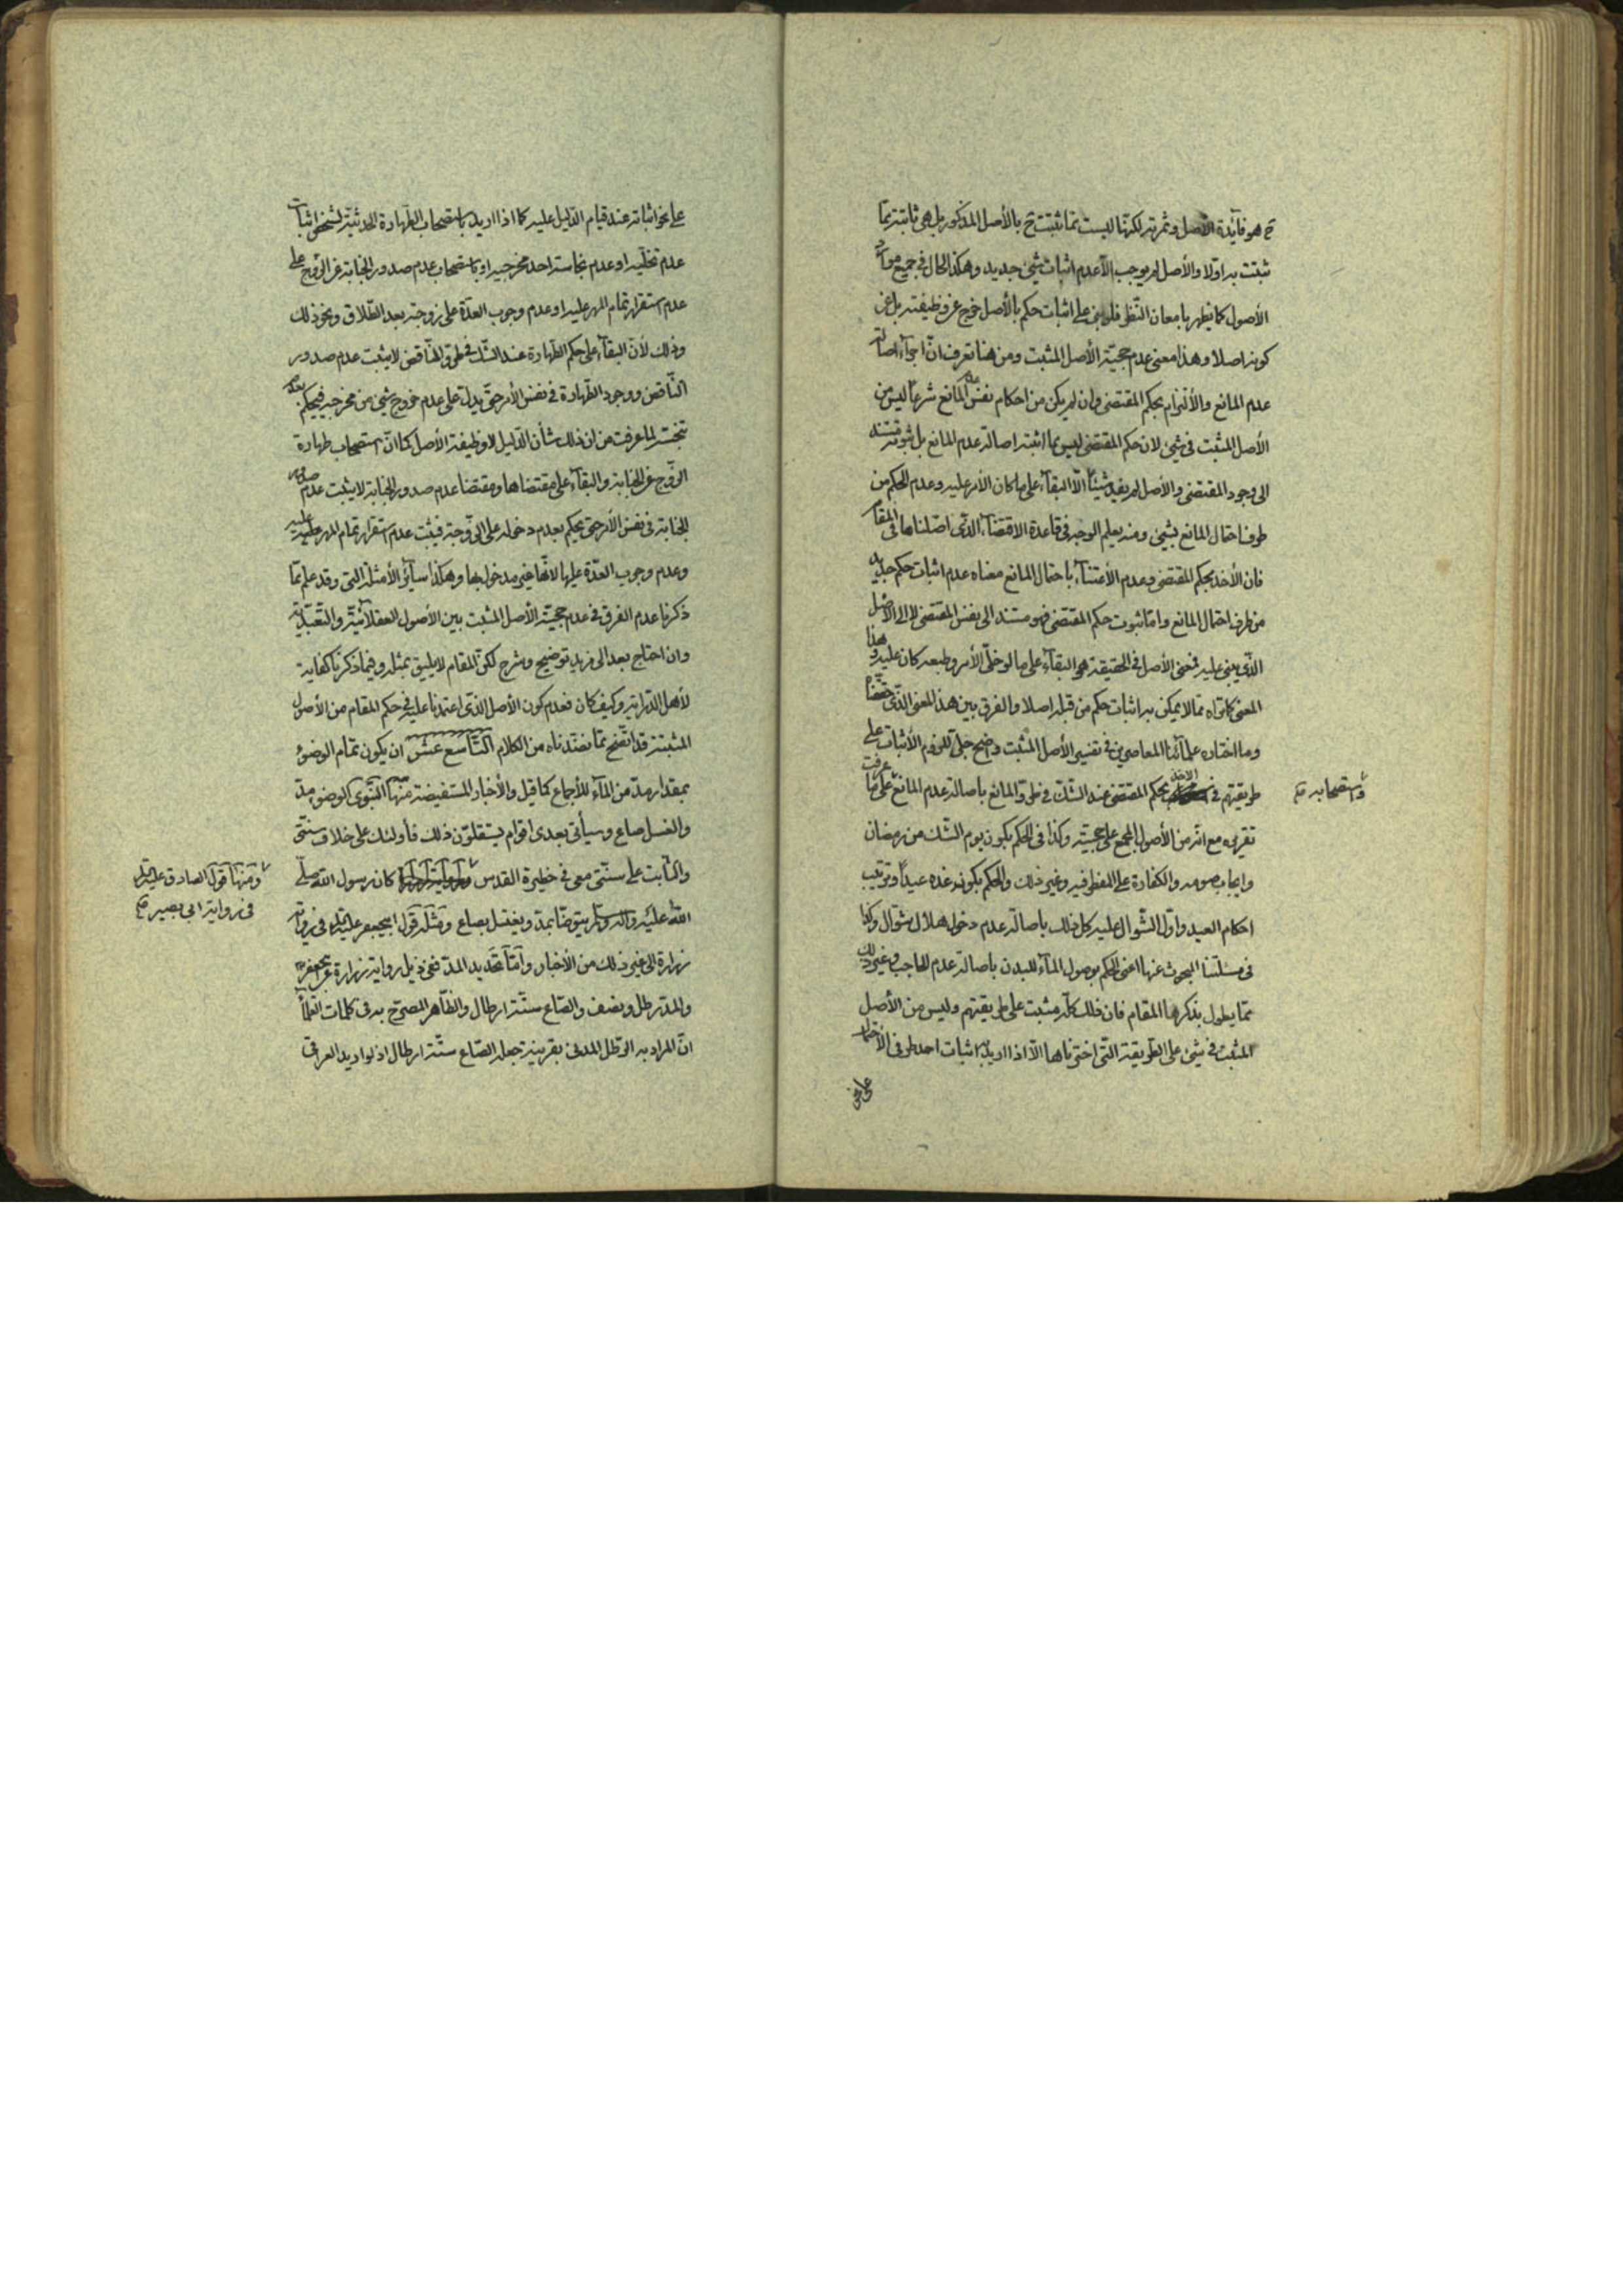 ح هو فائدة الأصل وثمرته لكنها ليست مما ثبتت ح بالأصل المذكور بل هي ثابتة بما
ثبتت به اولا والأصل لم يوجب الا عدم اثبات شيء جديد وهكذا الحال في جميع موارد
الأصول كما يظهر بامعان النظر فلو بنى على اثبات حكم بالأصل خرج عن وظيفته بل عن
كونه اصلا وهذا معنى عدم حجية الأصل المثبت ومن هنا تعرف ان اجراء اصالة
عدم المانع والألتزام بحكم المقتضى وان لم يكن من احكام نفس عدم المانع شرعا ليس من
الأصل المثبت في شيء لان حكم المقتضى ليس مما اثبته اصالة عدم المانع بل ثبوته مستند
الى وجود المقتضى والأصل لم يفد شيئا الا البقاء على ما كان الأمر عليه وعدم الحكم من
طرف احتمال المانع بشيء ومنه يعلم الوجه في قاعدة الاقتضاء الذى اصلناها في المقام
فان الأخذ بحكم المقتضى وعدم الأعتناء باحتمال المانع معناه عدم اثبات حكم جديد
من طرف احتمال المانع واما ثبوت حكم المقتضى فهو مستند الى نفس المقتضى لا الى الأصل
الذى بنى عليه فمعنى الأصل في الحقيقة هو البقاء على ما لو خلى الأمر وطبعه كان عليه وهذا
المعنى كما تراه مما لا يمكن به اثبات حكم من قبله اصلا والفرق بين هذا المعنى الذى حققناه
وما اختاره علمائنا المعاصرين في تفسير الأصل المثبت واضح جلى للزوم الأثبات على
طريقتهم في الاخذ بحكم المقتضى عند الشك في طرو المانع باصالة عدم المانع على ما عرفت
واستصحابه صح
تقريره مع انه من الأصول المجمع على حجيته وكذا في الحكم بكون يوم الشك من رمضان
وايجاب صومه والكفارة على المفطر فيه وغير ذلك والحكم بكون غده عيدا وترتيب
احكام العيد واول الشوال عليه كل ذلك باصالة عدم دخول هلال شوال وكذا
في مسئلتنا المبحوث عنها اعنى الحكم بوصول الماء للبدن باصالة عدم الحاجب وغير ذلك
مما يطول بذكرها المقام فان ذلك كله مثبت على طريقتهم وليس من الأصل
المثبت في شيء على الطريقة التي اخترناها الا اذا اريد به اثبات احد طرفي الأحتمال
على نحو
على نحو اثباته عند قيام الدليل عليه كما اذا اريد باستصحاب الطهارة الحدثية لشخص اثبات
عدم تخليه او عدم نجاسة احد مخرجيه او باستصحاب عدم صدور الجنابة عن الزوج على
عدم استقرار تمام المهر عليه او عدم وجوب العدة على زوجته بعد الطلاق ونحو ذلك
وذلك لأن البقاء على حكم الطهارة عند الشك في طرو الناقض لا يثبت عدم صدور
الناقض ووجود الطهارة في نفس الأمر حتى يدل على عدم خروج شيء من مخرجيه فيحكم بعدم
تنجسه لما عرفت من ان ذلك شأن الدليل لا وظيفة الأصل كما ان استصحاب طهارة
الزوج عن الجنابة والبقاء على مقتضاها ومقتضا عدم صدور الجنابة لا يثبت عدم صدور
الجنابة في نفس الأمر حتى يحكم بعدم دخوله على الزوجة فيثبت عدم استقرار تمام المهر عليه
وعدم وجوب العدة عليها لانها غير مدخول بها وهكذا سائر الأمثلة التي وقد علم مما
ذكرنا عدم الفرق في عدم حجية الأصل المثبت بين الأصول العقلائية والتعبدية
وان احتاج بعد الى مزيد توضيح وشرح لكن المقام لا يليق بمثله وفيما ذكرنا كفاية
لأهل الدراية وكيف كان فعدم كون الأصل الذى اعتمدنا عليه في حكم المقام من الأصول
المثبتة قد اتضح مما نضدناه من الكلام التاسع عشر ان يكون تمام الوضوء
بمقدار مد من الماء للأجماع كما قيل والأخبار المستفيضة منها النبوى الوضوء مد
والغسل صاع وسيأتى بعدى اقوام يستقلون ذلك فأولئك على خلاف سنتى
والثابت على سنتى معى في حظيرة القدس كان رسول الله صلى
ومنها قول الصادق عليه السلام
في رواية ابى بصير صح
الله عليه وآله وسلم يتوضأ بمد ويغتسل بصاع ومثله قول ابيجعفر عليه السلام في رواية
زرارة الى غير ذلك من الأخبار واما تحديد المد ففى ذيل رواية زرارة عن ابيجعفر
والمد رطل ونصف والصاع ستة ارطال والظاهر المصرح به في كلمات العلماء
ان المراد به الرطل المدنى بقرينة جعله الصاع ستة ارطال اذ لو اريد العراقى